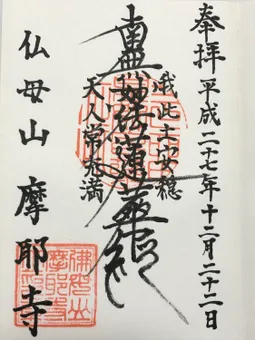 奉拝 平成二十七年十二月二十二日
我此土安穏
南無妙法蓮華経
天人常充満
仏母山 摩耶寺